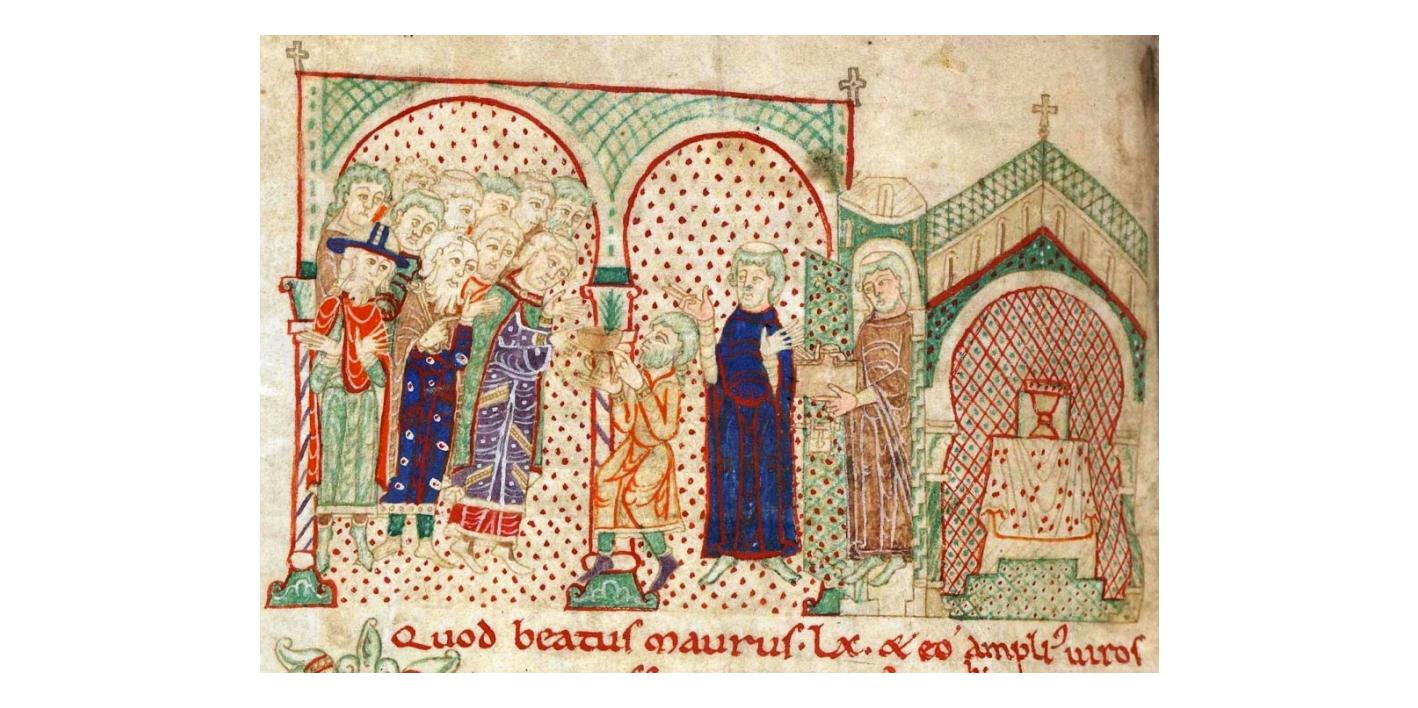 Quod beatus maurus·lx·& eo ampli᾽ uiros